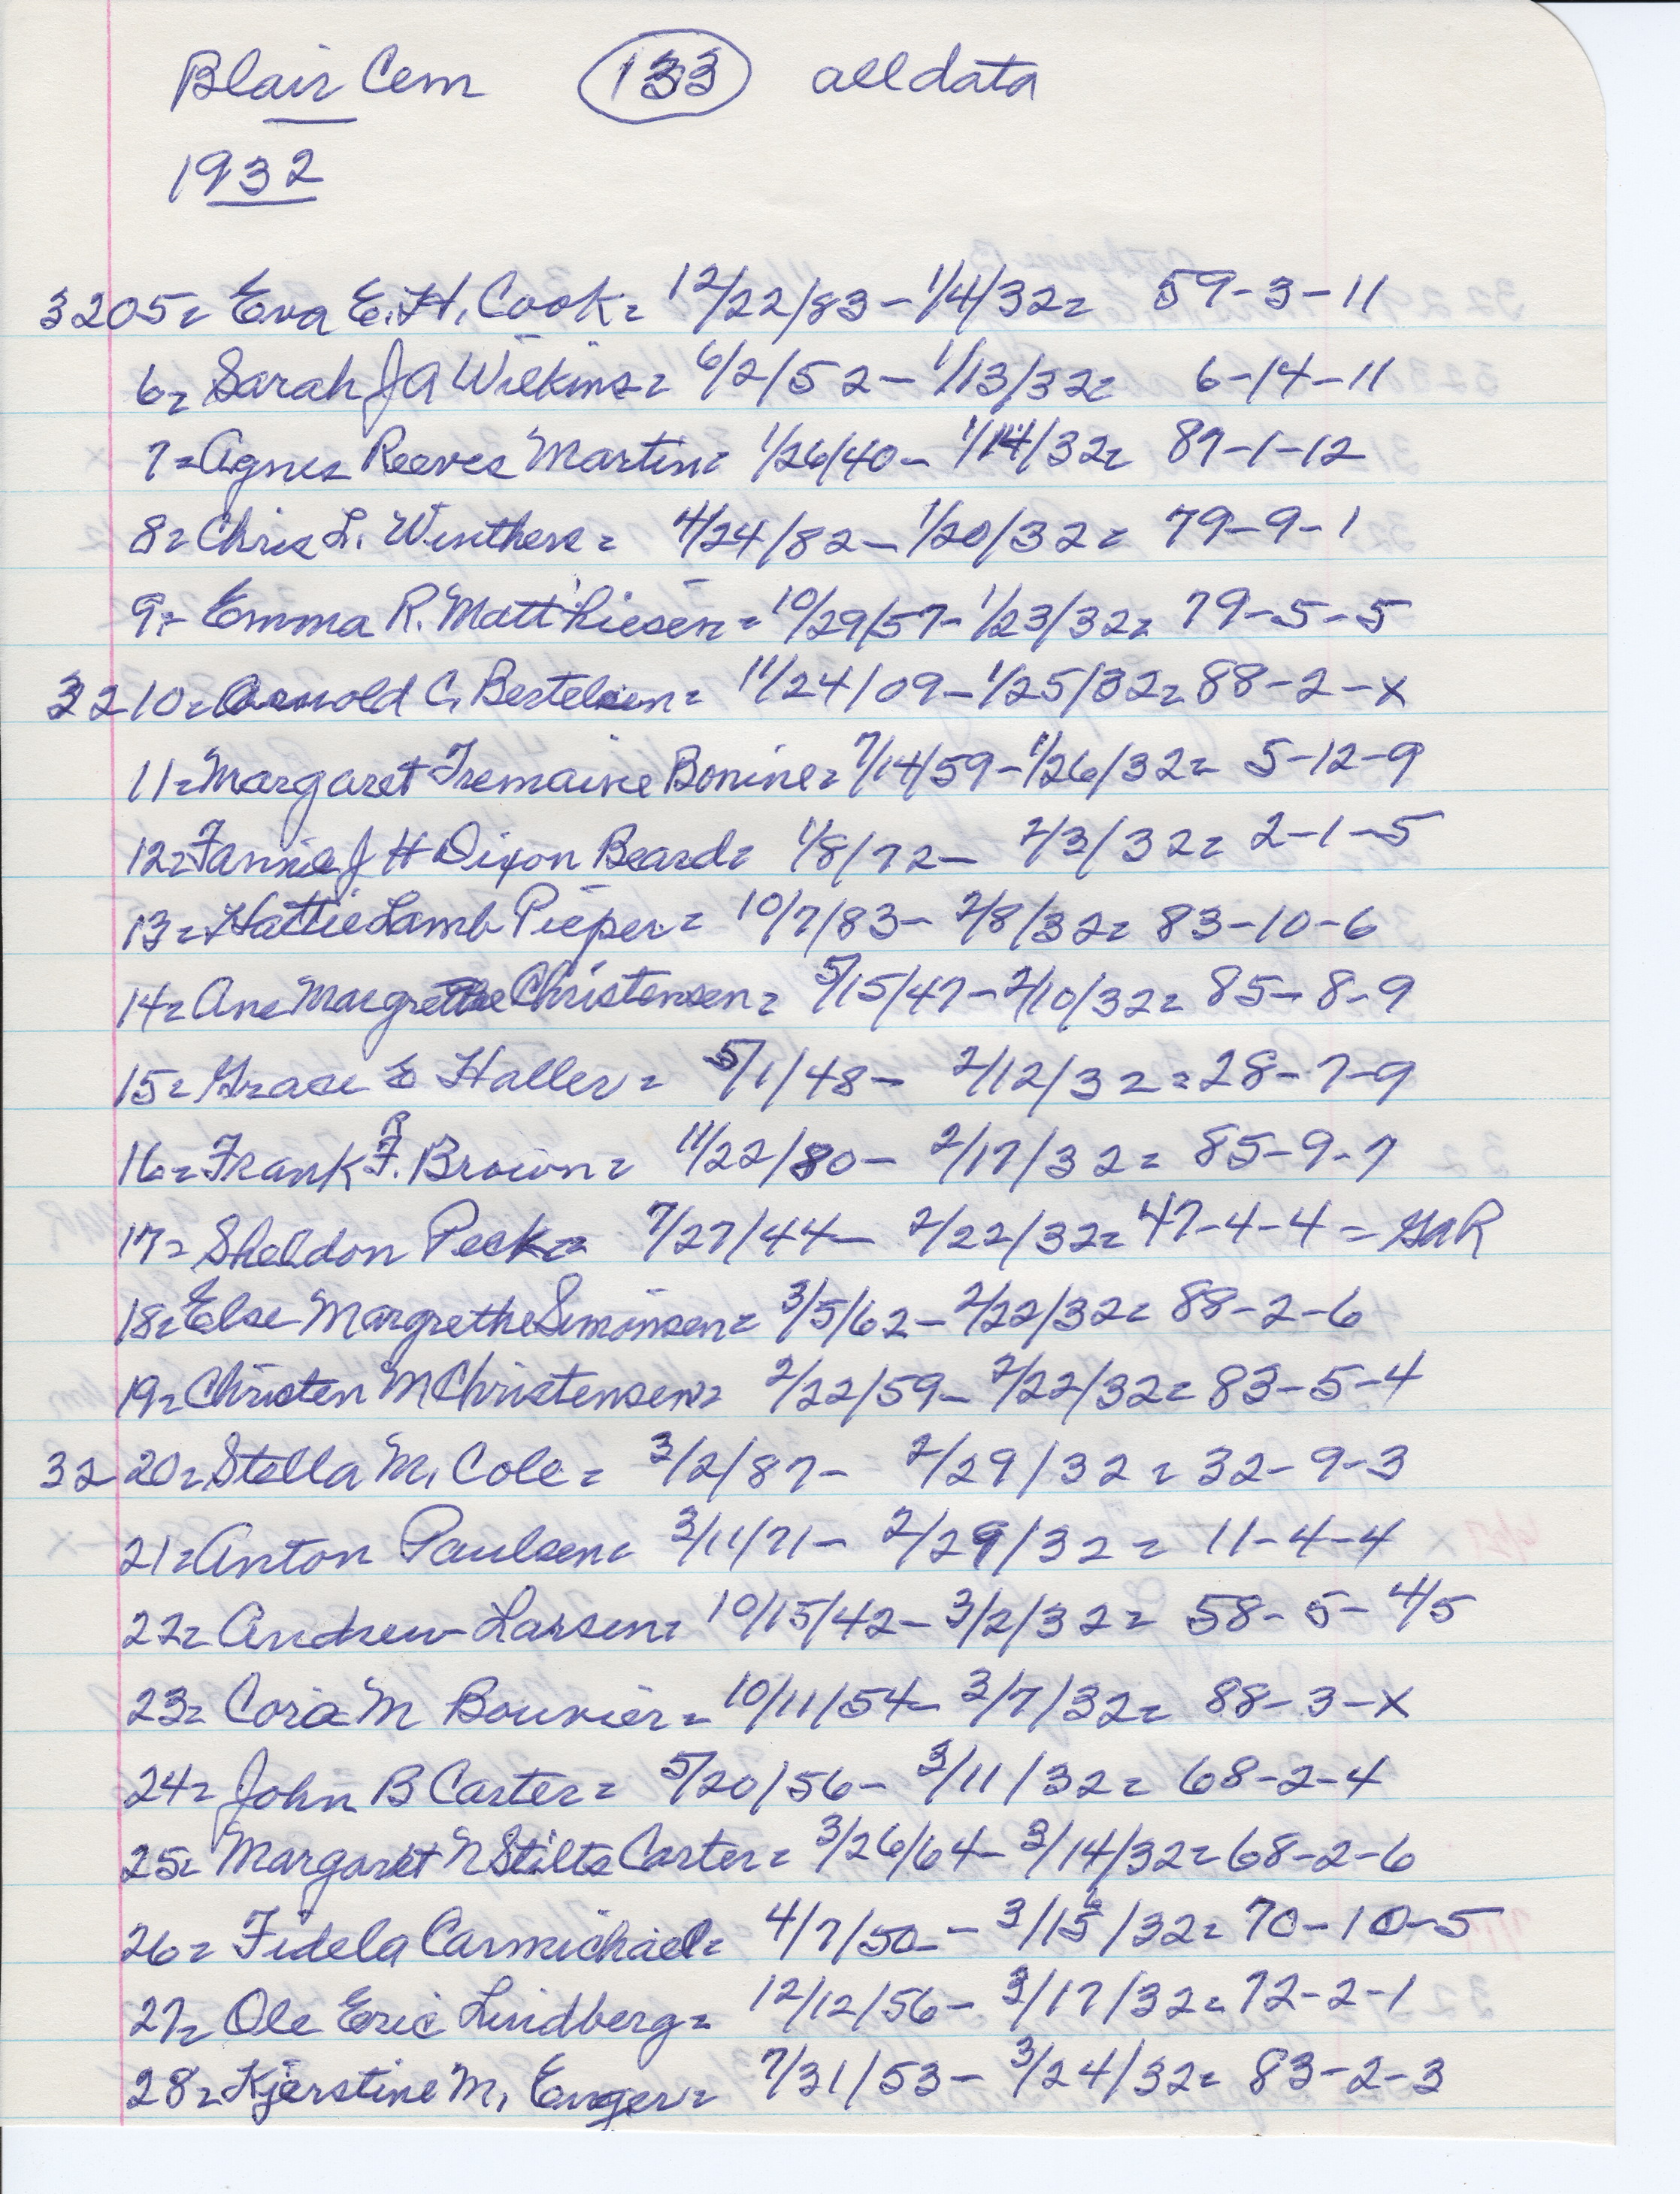 Blair Cem 133 all data
1932
3205= Eva E. H. Cook= 12/22/83 - 1/4/32= 59-3-11
6= Sarah J A Wilkins= 6/2/52 - 1/13/32= 6-14-11
7= Agnes Reeves Martin= 1/26/40 - 1/14/32= 89-1-12
8= Chris L. Winthers= 4/24/82 - 1/20/32= 79-9-1
9= Emma R. Matthiesen= 10/29/57 - 1/23/32= 79-5-5
3210= Arnold C. Bertelsen= 11/24/09 - 1/25/32= 88-2-x
11= Margaret Tremaine Bonine= 7/14/59 - 1/26/32= 5-12-9
12= Fannie J H Dixon Beard= 1/8/72 - 2/3/32= 2-1-5
13= Hattie Lamb Pieper= 10/7/83 - 2/8/32= 83-10-6
14= Ane Margrethe Christensen= 5/15/47 - 2/10/32= 85-8-9
15= Grace E Haller= 5/1/48 - 2/12/32= 28-7-9
16= Frank F. Brown= 11/22/80 - 2/17/32= 85-9-7
17= Sheldon Peck= 7/27/44 - 2/22/32= 47-4-4 = GAR
18= Else Margrethe Simonsen= 3/5/62 - 2/22/32= 88-2-6
19= Christen M Christensen= 2/22/59 - 2/22/32= 83-5-4
3220= Stella M. Cole= 3/2/87 - 2/29/32= 32-9-3
21= Anton Paulsen= 3/11/71 - 2/29/32= 11-4-4
22= Andrew Larsen= 10/15/42 - 3/2/32= 58-5-4/5
23= Cora M Bouvier= 10/11/54 - 3/7/32= 88-3-x
24= John B Carter= 5/20/56 - 3/11/32= 68-2-4
25= Margaret N Stilts Carter= 3/26/64 - 3/14/32= 68-2-6
26= Fidela Carmichael= 4/7/50 - 3/15/32= 70-10-5
27= Ole Eric Lindberg= 12/12/56 - 3/17/32= 72-2-1
28= Kjerstine M. Enger= 7/31/53 - 3/24/32= 83-2-3